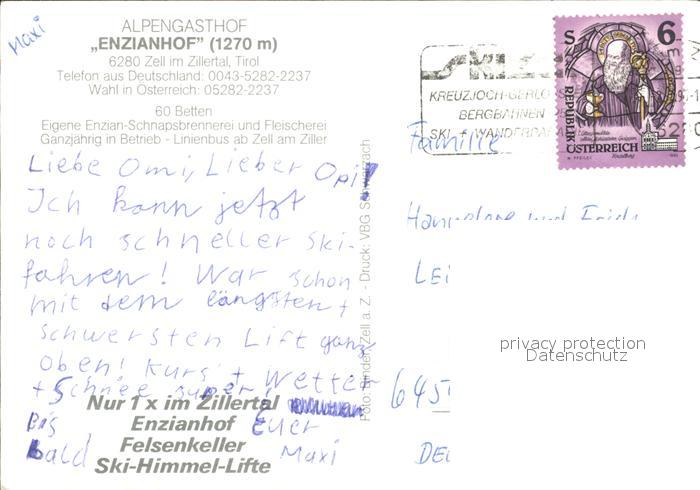 Maxi
ALPENGASTHOF
„ENZIANHOF" (1270 m)
6280 Zell im Zillertal, Tirol
Telefon aus Deutschland: 0043-5282-2237
Wahl in Österreich: 05282-2237
60 Betten
Eigene Enzian-Schnapsbrennerei und Fleischerei
Ganzjährig in Betrieb - Linienbus ab Zell am Ziller
Liebe Omi, Lieber Opi!
Ich kann jetzt
noch schneller Ski-
fahren! War schon
mit dem längsten +
schwersten Lift ganz
oben! Kurs + Wetter
+ Schnee super!
Nur 1 x im Zillertal
Enzianhof
Felsenkeller
Ski-Himmel-Lifte
Bis
bald
Euer
Maxi
Zell a. Z. - Druck: VBG Schwarzach
SKI
KREUZJOCH-GERLO
BERGBAHNEN
SKI + WANDERPA
S 6
REPUBLIK
ÖSTERREICH
Familie
Hannelore und
LEI
645
DEU
privacy protection
Datenschutz